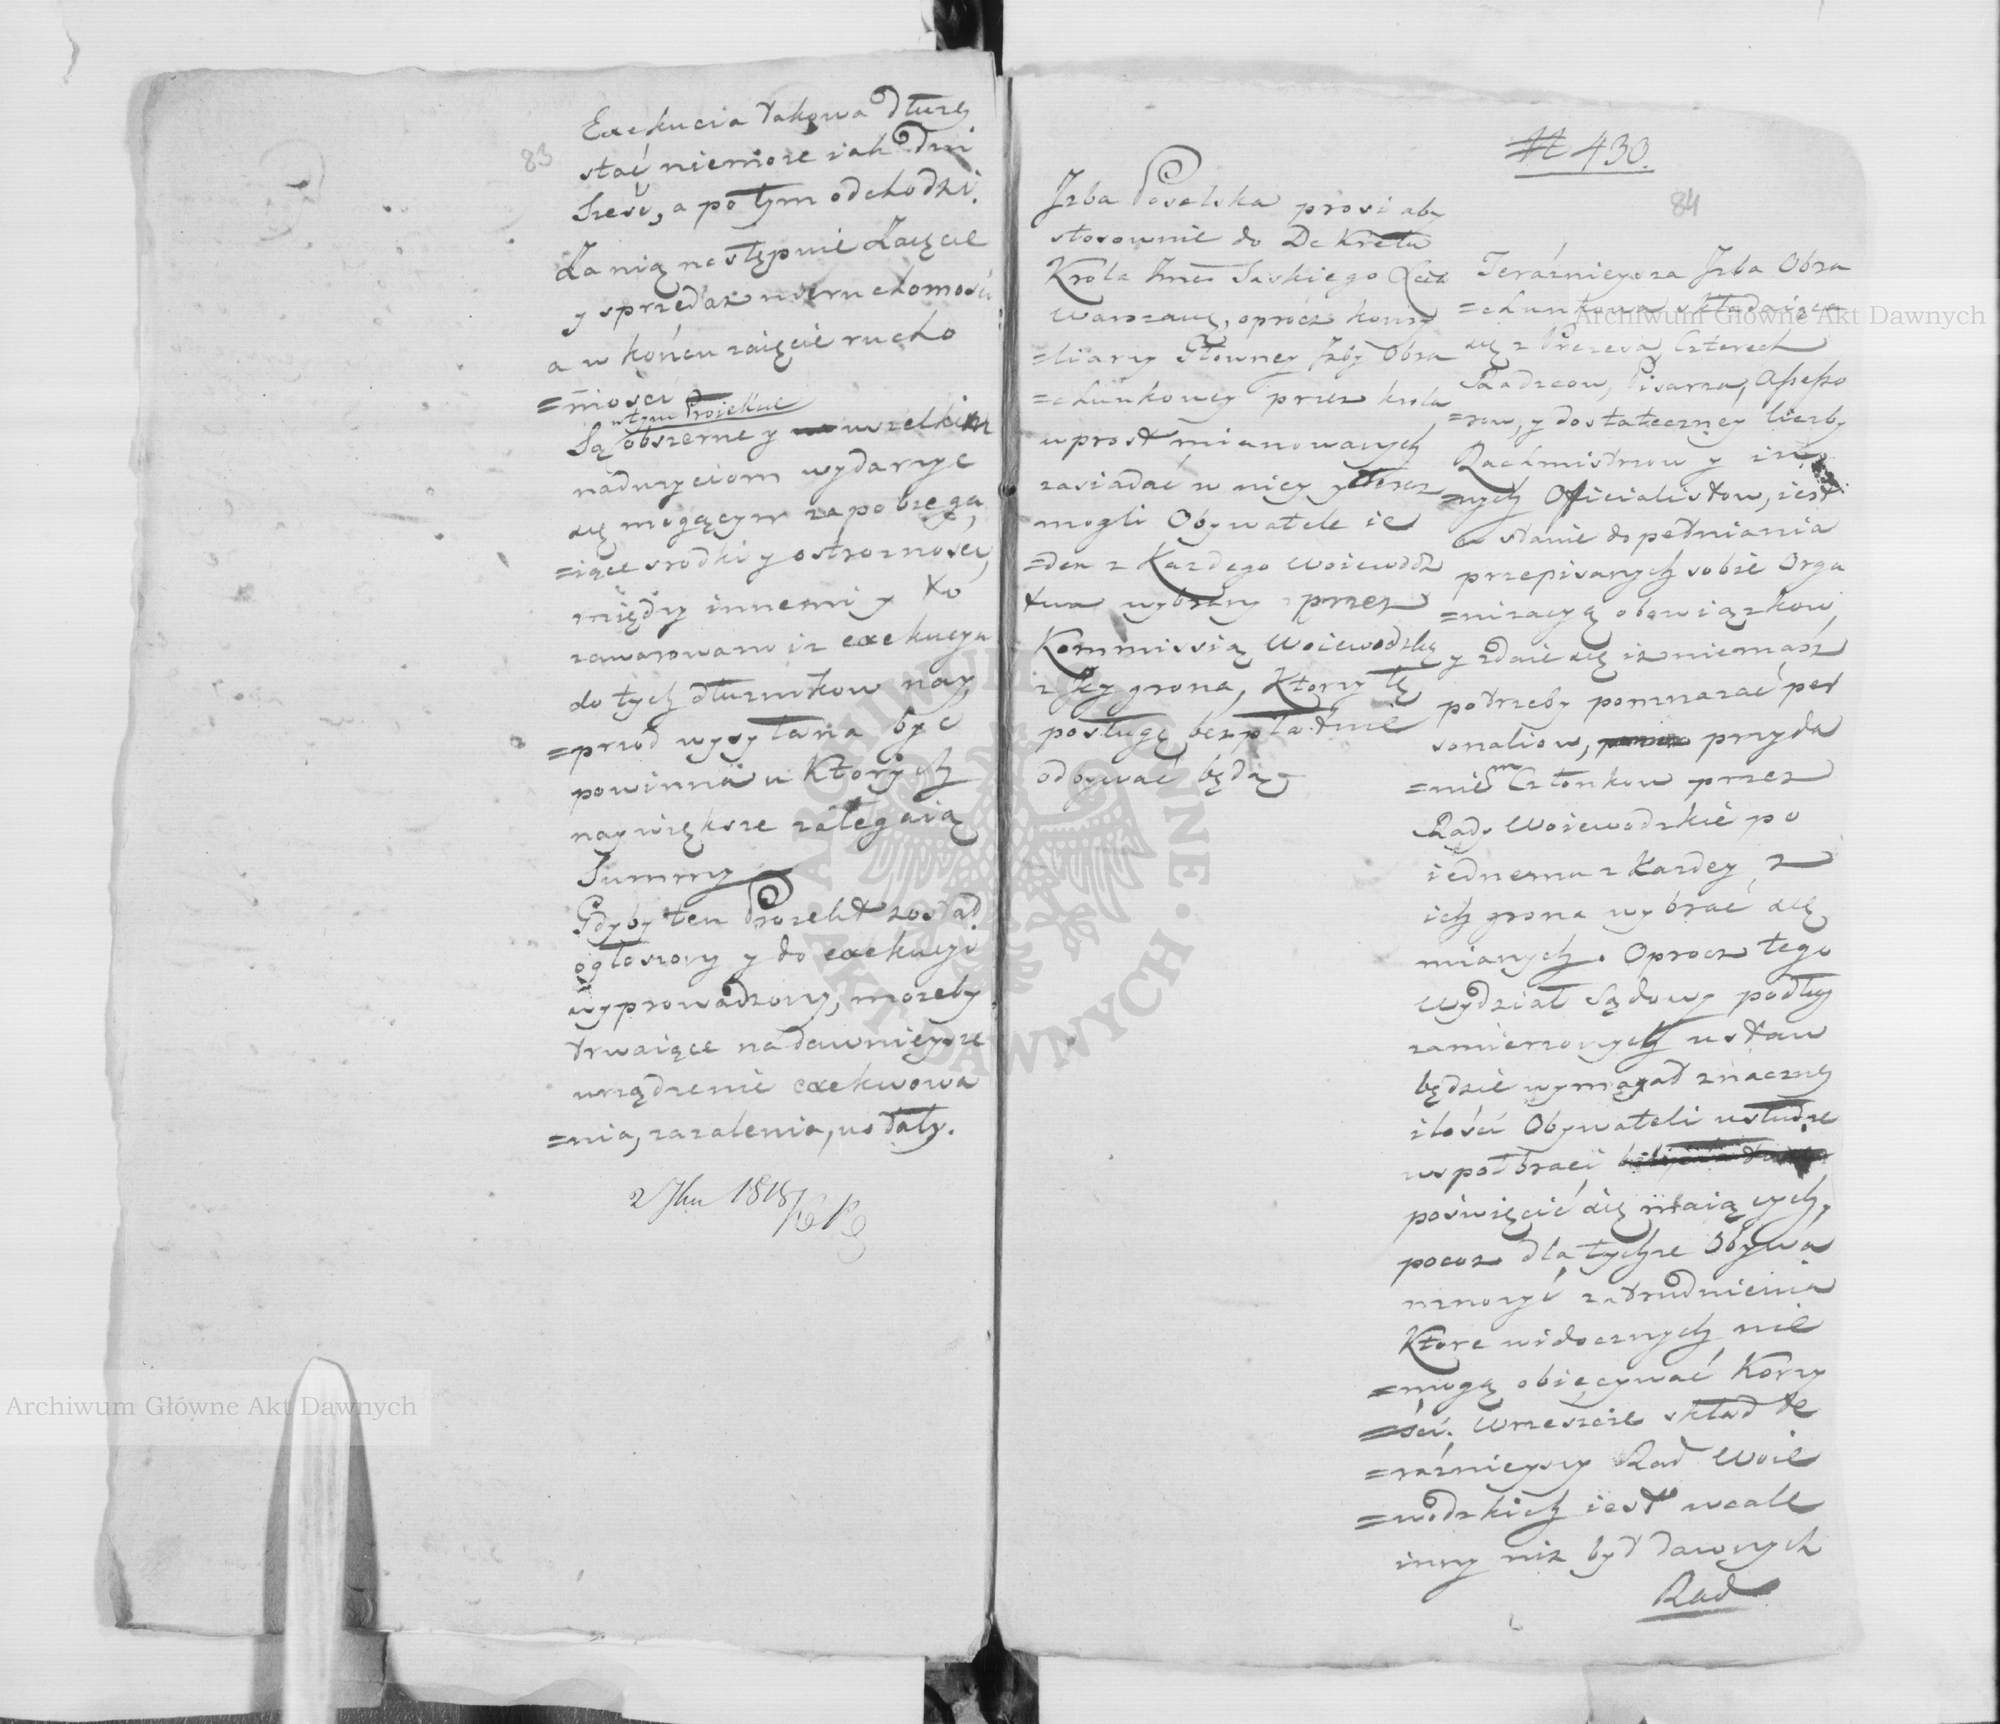 83
Exekucia takowa dłuzey
stać niemoze iak dni
sześć, a potym odchodzi.
Za nią następnie Zaięcie
y sprzedaz nieruchomości
a w końcu zaięcie rucho
=mości
w tym Proiekcie
Są obszerne y wszelkim
naduzyciom wydarzyc
się mogącym zapobiega
=iące srodki y ostroznosci,
między innemi y to
zawarowano iz exekucya
do tych dłuznikow nay
=przod wysyłana być
powinna u Ktorych
naywiększe zalegaią
Summy
Gdyby ten Proiekt został
ogłoszony y do exekucyi
wyprowadzony, mozeby
trwaiące na dawnieysze
urządzenie exekwowa
=nia, zazalenia, ustały.
1818
№ 430.
84
Izba Poselska prosi aby
stosownie do Dekretu
Króla Saskiego
Warszawę, oprócz konsy
=liarzy Główney Izby Obra
=chunkowey przez króla
wprost mianowanych
zasiadać w niey y teraz
mogli Obywatele ie
=den z Kazdego Woiewodz
twa wybrany przez
Kommissią Woiewodzką
z Jey grona, Ktorzy tę
posługę bezpłatnie
odbywać będą
Teráznieysza Izba Obra
=chunkowa składaiąca
się z Prezesa, Czterech
Radzcow, Pisarza, Assesso
=row, y dostateczney liczby
Rachmistrzow y in
=nych Oficialistow, iest
w stanie dopełniania
przepisanych sobie Orga
=nizacyą obowiązkow,
y zdaie się iz niemász
potrzeby pomnazać per
sonaliow, przyda
=niem Członkow przez
Rady Woiewodzkie po
iednemu z Kazdey z
ich grona wybrać się
mianych. Oprocz tego
Wydział Sądowy podług
zamierzonych ustaw
będzie wymagał znaczney
ilości Obywateli usłudze
wspołbraci
poświęcić się maiących,
pocoz dla tychze Obywa
mnozyć zatrudnienia
Ktore widocznych nie
=mogą obiecywać Korzy
=ści. Wreszcie skład te
=ráznieyszy Rad Woie
=wodzkich iest wcale
inny niz był dawnych
Rad
Archiwum Główne Akt Dawnych
Archiwum Główne Akt Dawnych
ARCHIWUM GŁÓWNE · AKT DAWNYCH ·